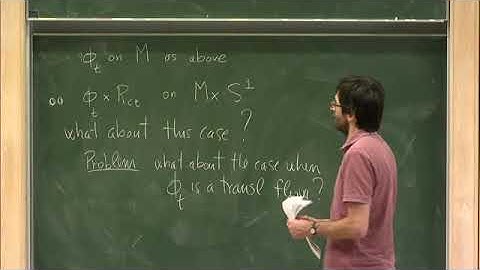 ϕ_t on M as above
ϕ_t × R_ct on M × S¹
what about this case?
Problem what about the case when
ϕ_t is a transl flow?